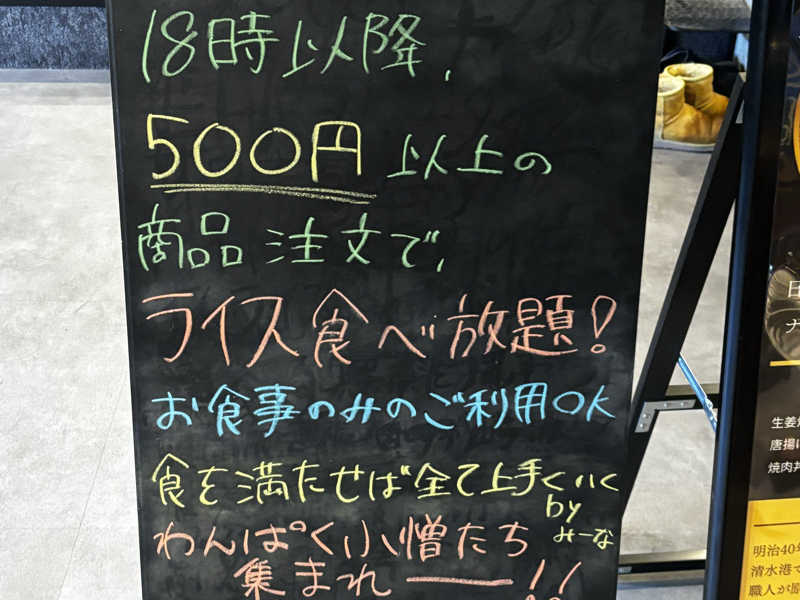 18時以降、
500円以上の
商品注文で、
ライス食べ放題!
お食事のみのご利用OK
食を満たせば全て上手くいく
by
みーな
わんぱく小憎たち
集まれー!!
生姜
唐揚
焼肉丼
明治40年
清水港で
職人が